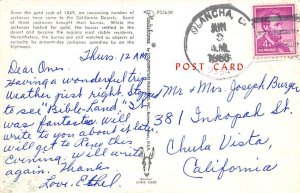 Since the gold rush of 1849, an increasing number of
have come to the California Deserts. Since
many pioneers used their burros. While the
the burros, the
desert and became the regional most stable residents.
Nevertheless, the burros are still watched as objects of
curiosity by present-day pioneers speeding by on the
highways.
P32639
Thurs. 12 AM
Dear Ones,
Having a wonderful trip
Weather just right. Stopped
to see "Bible-Land". It
was fantastic will
write to you about it later
will get to Reno this
evening. Will write
again. Thank
Love. Ethel.
POST CARD
OLANCHA, C
JUN
A.M.
1960
4¢
Mr + Mrs. Joseph Burger
381 Inkopah St.
Chula Vista,
California